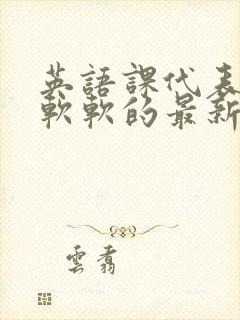 英語課代表
軟軟的最新
雲翥